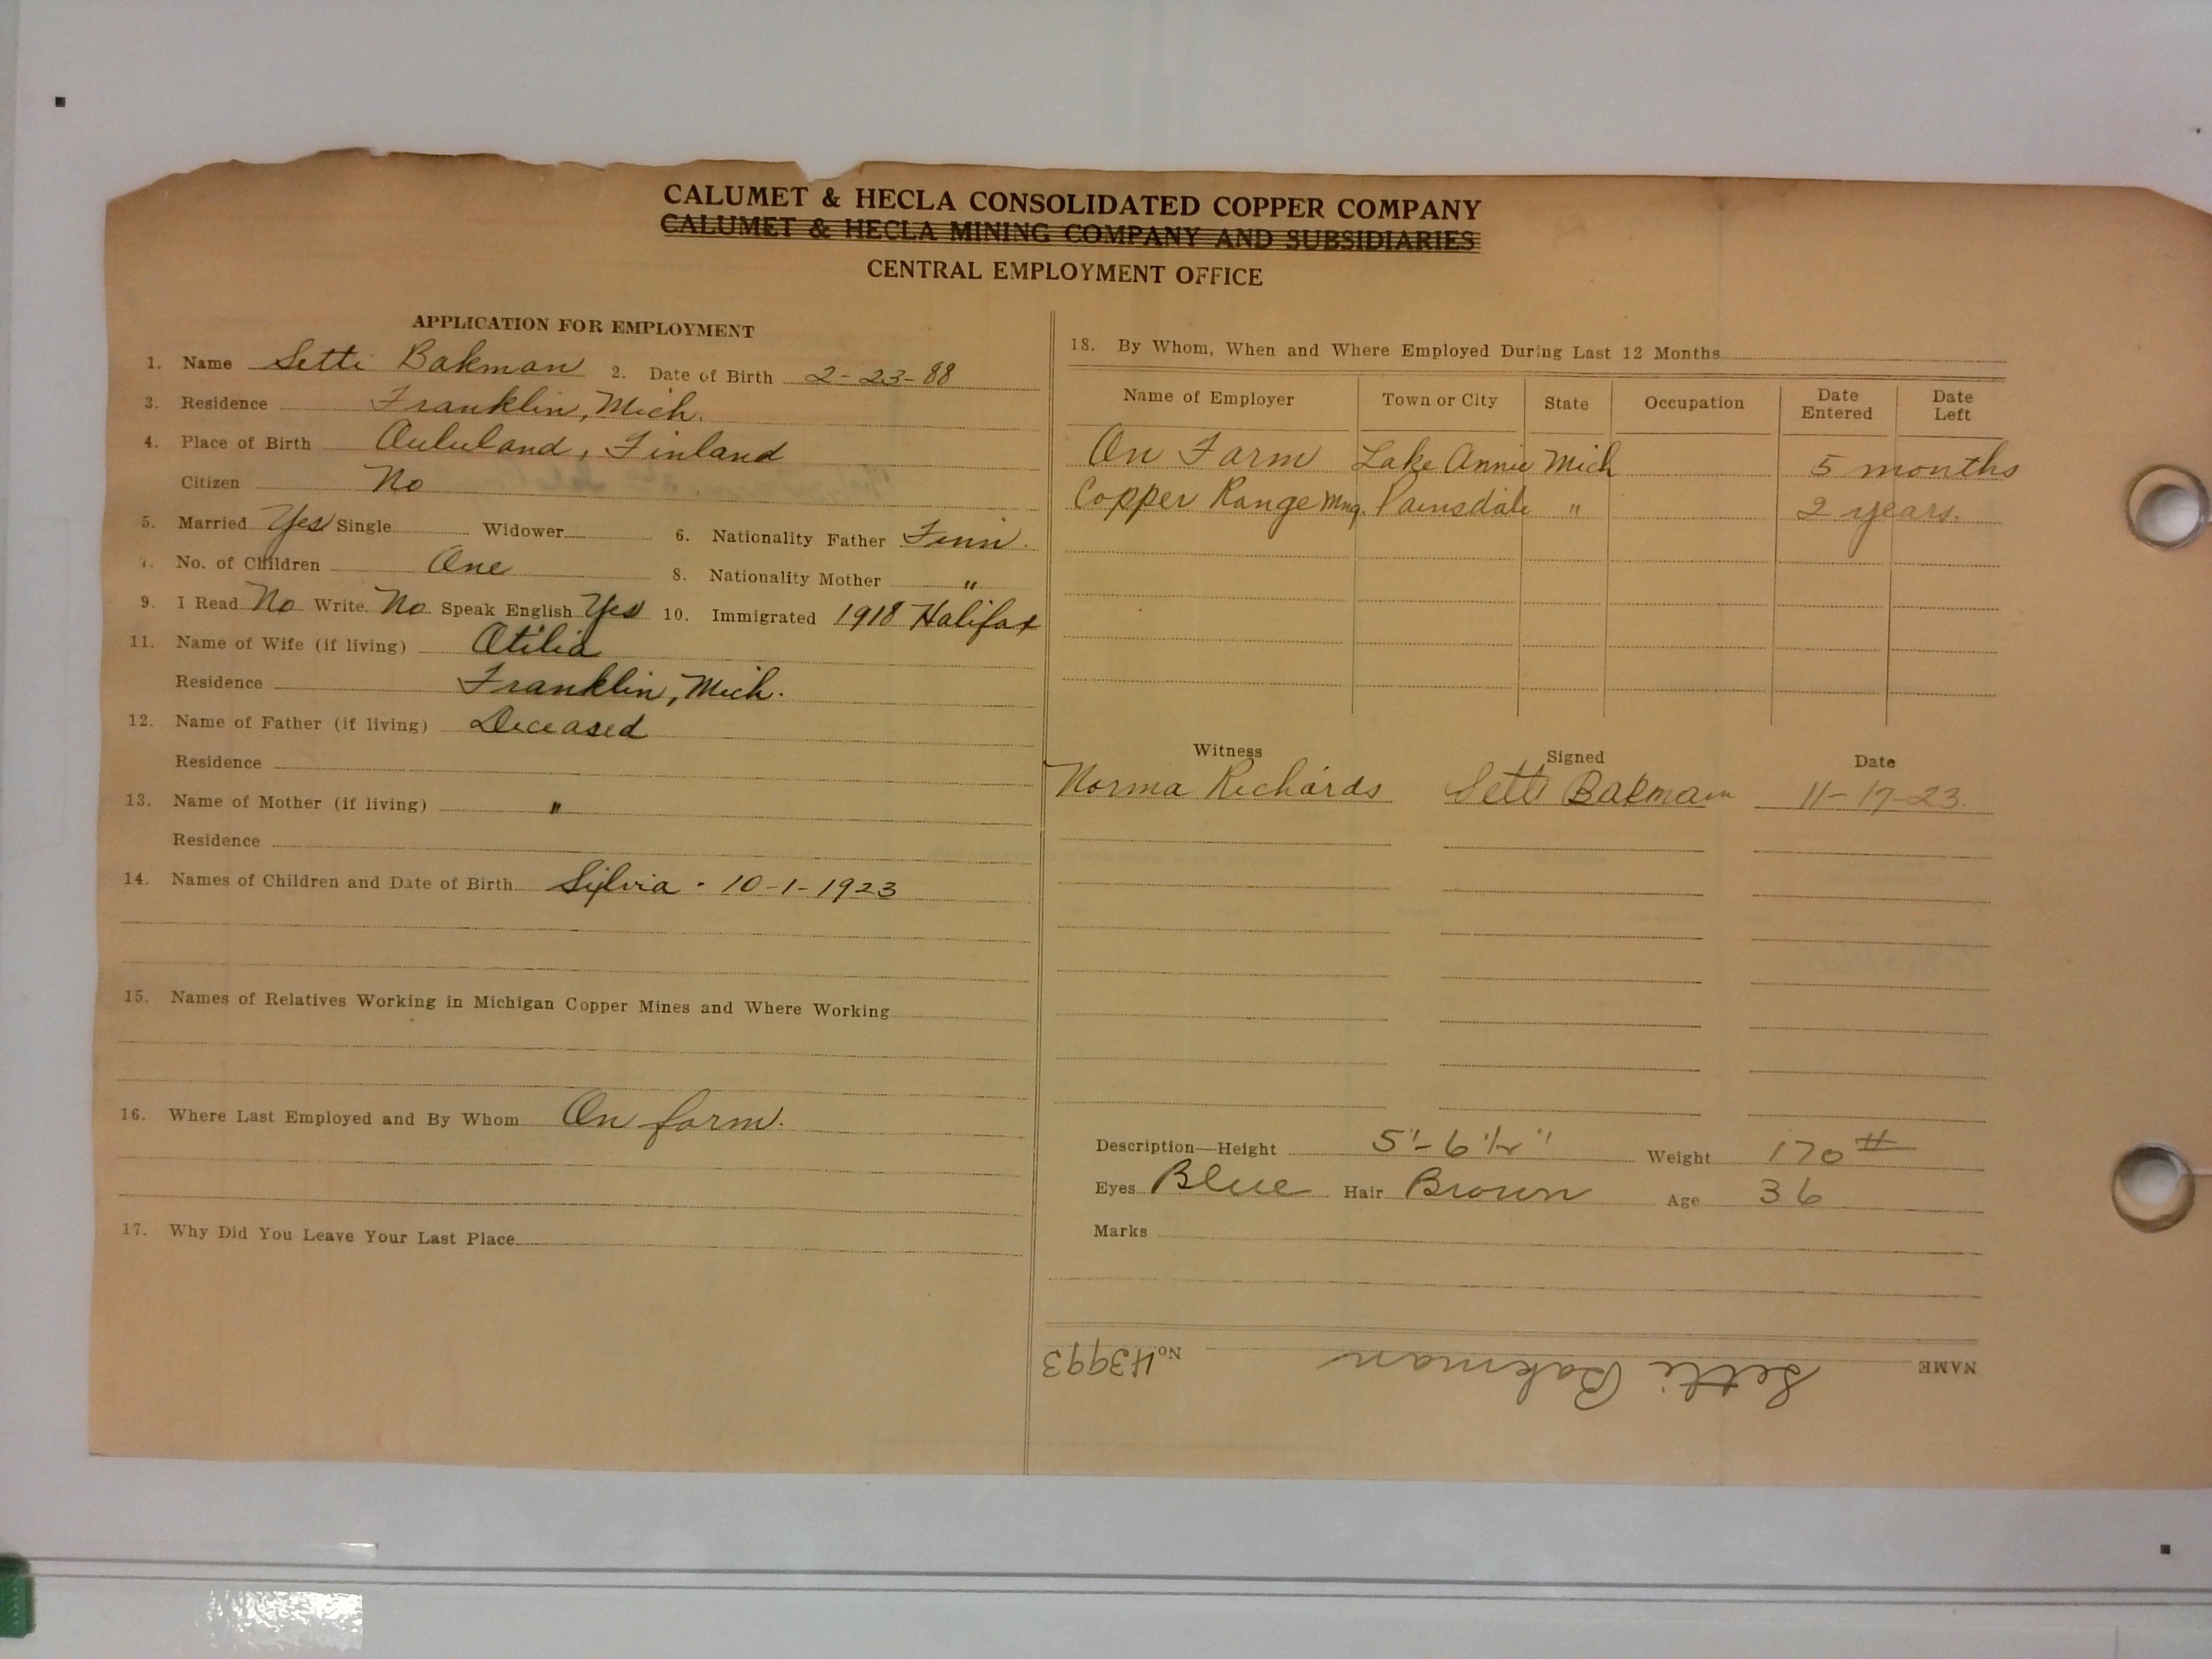 CALUMET & HECLA CONSOLIDATED COPPER COMPANY
CALUMET & HECLA MINING COMPANY AND SUBSIDIARIES
CENTRAL EMPLOYMENT OFFICE
APPLICATION FOR EMPLOYMENT
1. Name Setti Bakman 2. Date of Birth 2-23-88
3. Residence Franklin, Mich.
4. Place of Birth Oululand, Finland
Citizen No
5. Married Yes Single Widower 6. Nationality Father Finn.
7. No. of Children One 8. Nationality Mother "
9. I Read No Write No Speak English Yes 10. Immigrated 1918 Halifax
11. Name of Wife (if living) Otilia
Residence Franklin, Mich.
12. Name of Father (if living) Deceased
Residence
13. Name of Mother (if living) "
Residence
14. Names of Children and Date of Birth Sylvia - 10-1-1923
15. Names of Relatives Working in Michigan Copper Mines and Where Working
16. Where Last Employed and By Whom On farm.
17. Why Did You Leave Your Last Place
18. By Whom, When and Where Employed During Last 12 Months
Name of Employer Town or City State Occupation Date Entered Date Left
On Farm Lake Annie Mich 5 months
Copper Range Mng. Painsdale " 2 years.
Witness Signed Date
Norma Richards Setti Bakman 11-17-23.
Description—Height 5'-6 1/2" Weight 170 #
Eyes Blue Hair Brown Age 36
Marks
NAME Setti Bakman No. 43993